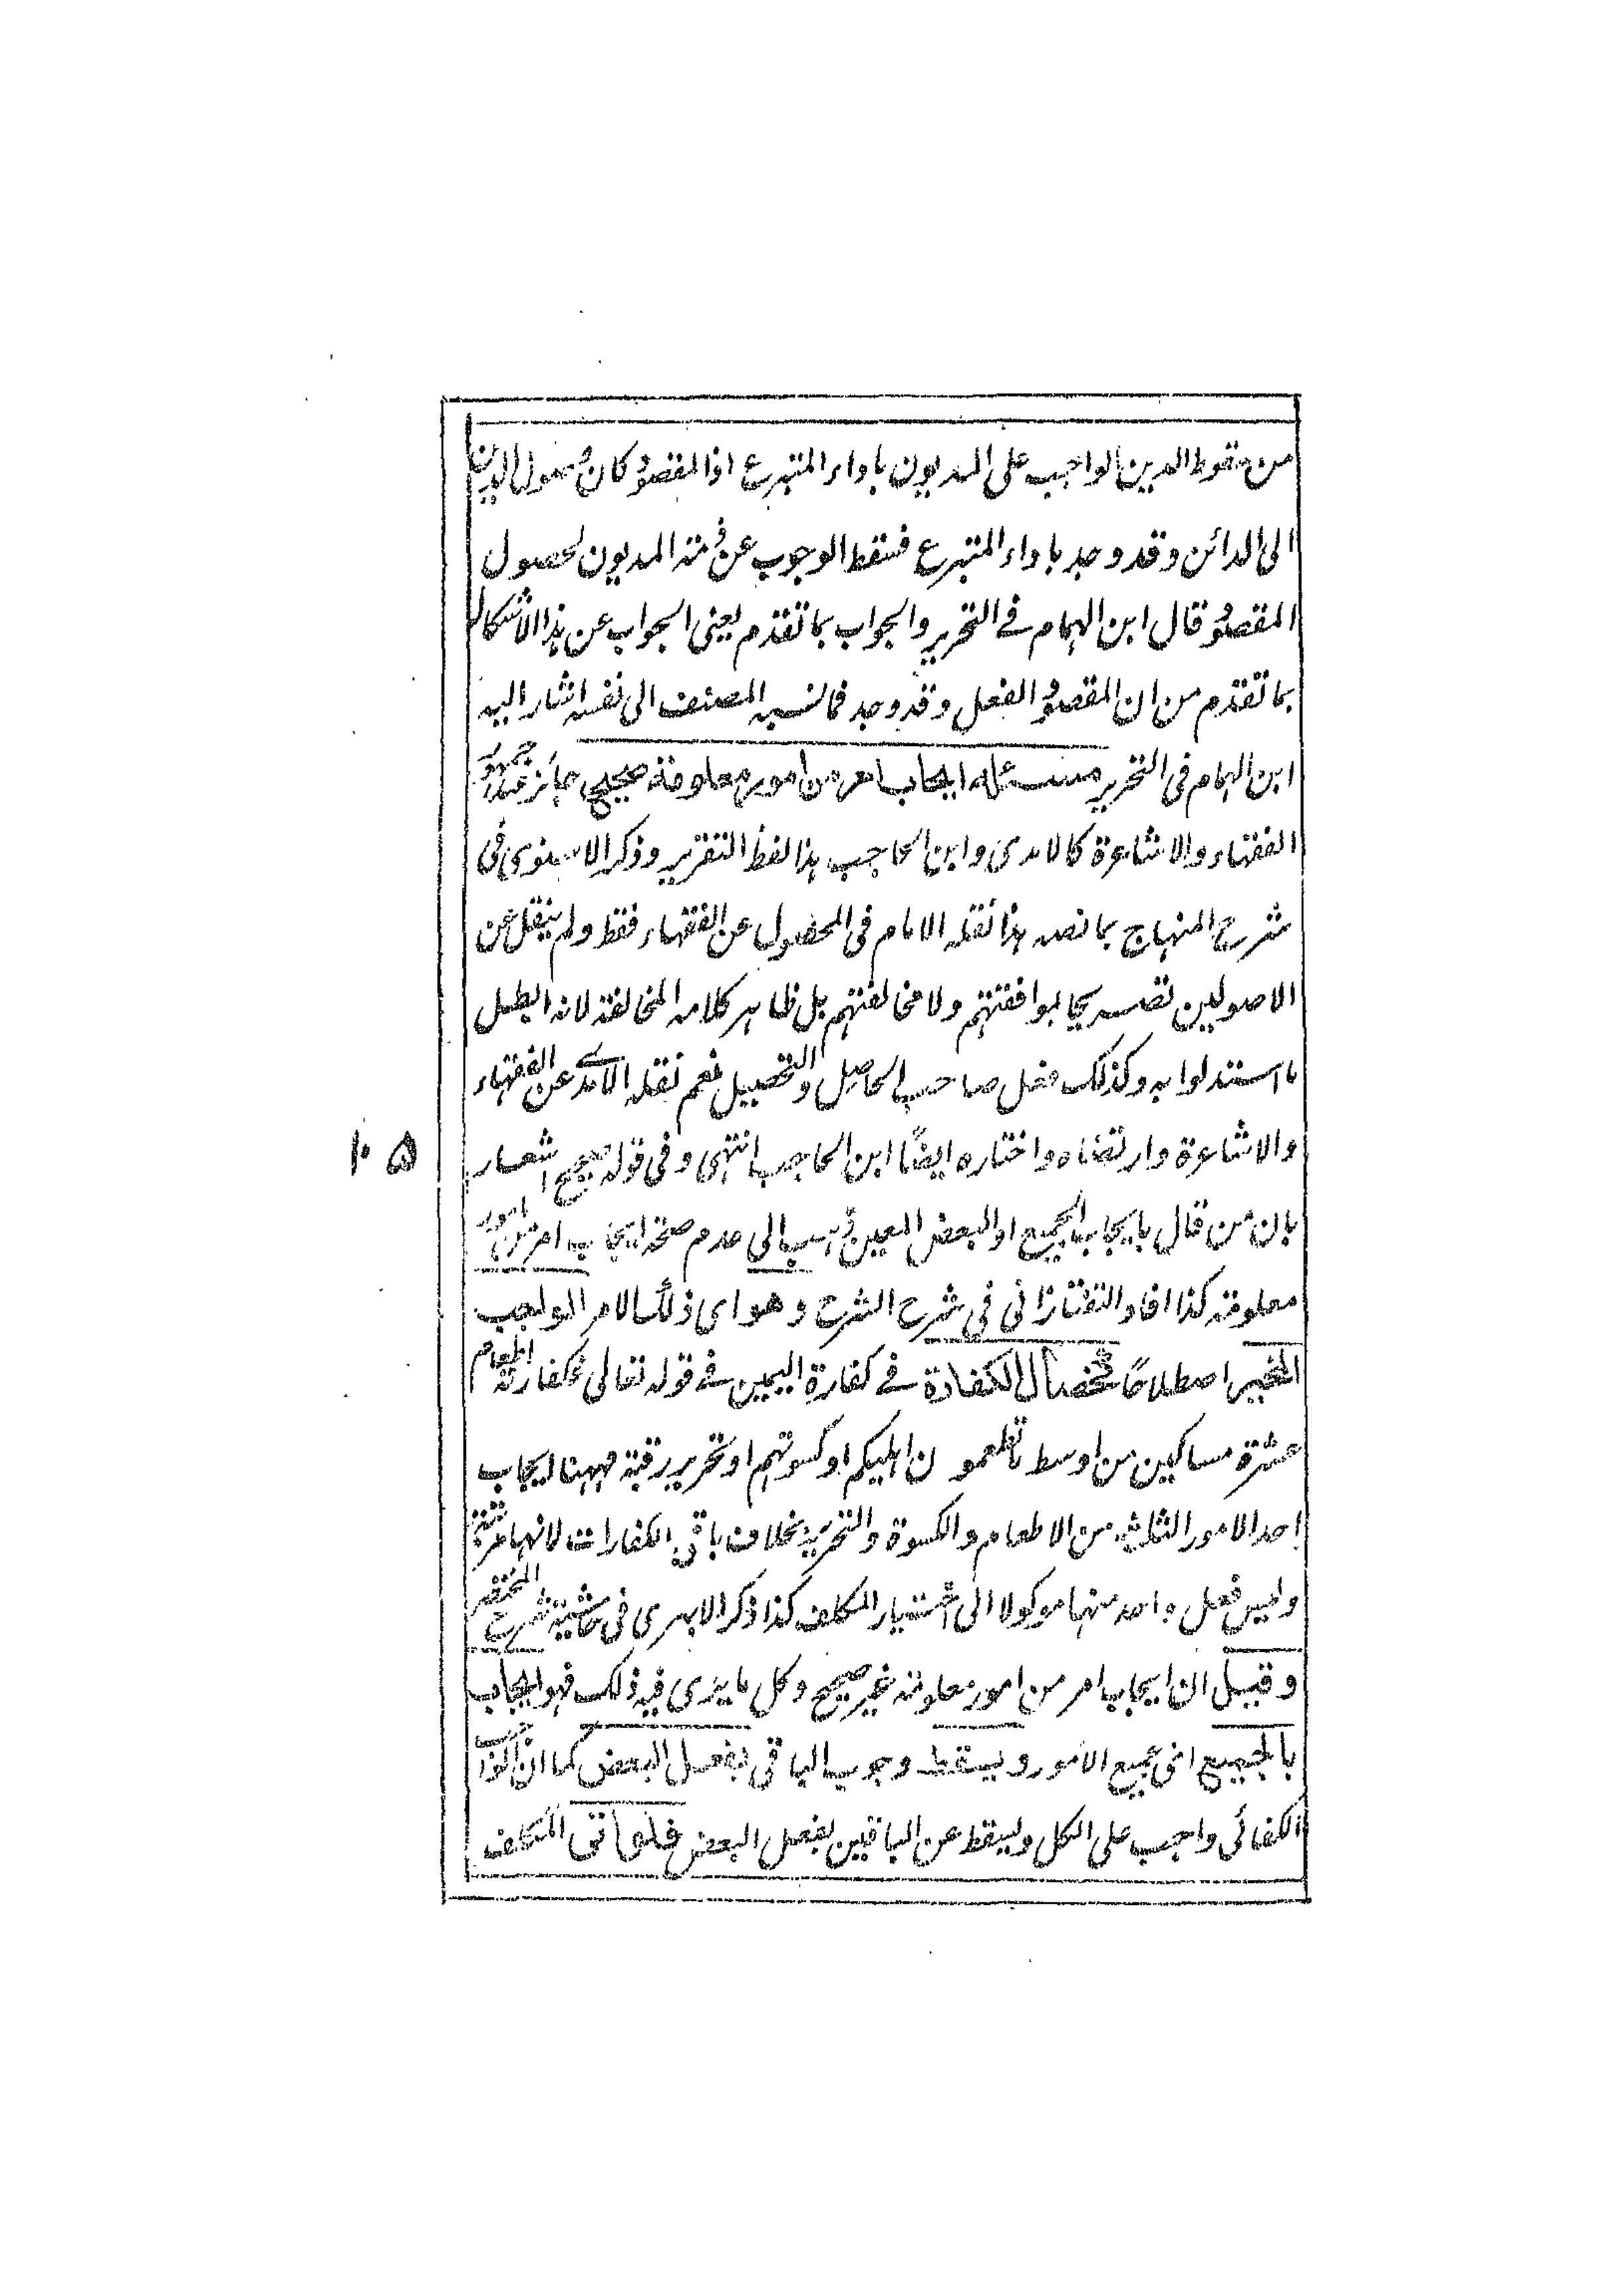 من سقوط الدين الواجب على المديون باداء المتبرع اذا المقصود كان حصول الدين
الى الدائن وقد وجد باداء المتبرع فسقط الوجوب عن ذمته المديون لحصول
المقصود قال ابن الهمام فے التحرير والجواب بما تقدم يعنى الجواب عن هذا الاشكال
بما تقدم من ان المقصود الفعل وقد وجد فما نسبه المصنف الى نفسه اشار اليه
ابن الهمام فى التحرير مسئله ايجاب امر من امور معلومة صحيح جائز عند جمهور
الفقهاء والاشاعرة كالامدى وابن الحاجب هذا لفظ التقرير وذكر الاسنوى فى
شرح المنهاج بما نصه هذا نقله الامام فى المحصول عن الفقهاء فقط ولم ينقل عن
الاصوليين تصريحا بموافقتهم ولا مخالفتهم بل ظاهر كلامه المخالفة لانه ابطل
ما استدلوا به وكذلك فعل صاحب الحاصل والتحصيل نعم نقله الآمدے عن الفقهاء
والاشاعرة وارتضاه واختاره ايضًا ابن الحاجب انتهى وفى قوله صحيح اشعار
۱۰۵
بان من قال بايجاب الجميع او البعض المعين ذهب الى عدم صحة ايجاب امر من امور
معلومة كذا افاد التفتازانى فى شرح الشرح وهو اى ذلك الامر الواجب
المخير اصطلاحًا كخصال الكفارة فے كفارة اليمين فے قوله تعالى فكفارته اطعام
عشرة مساكين من اوسط ما تطعمون اهليكم او كسوتهم او تحرير رقبة فههنا ايجاب
احد الامور الثلاث من الاطعام والكسوة والتحرير بخلاف باقى الكفارات لانها مرتبة
وليس فعل واحد منها موكولا الى اختيار المكلف كذا ذكر الابهرى فى حاشية شرح المختصر
وقيل ان ايجاب امر من امور معلومة غير صحيح وكل ما يرى فيه ذلك فهو ايجاب
بالجميع اى بجميع الامور ويسقط وجوب الباقى بفعل البعض كما ان الواجب
الكفائى واجب على الكل ويسقط عن الباقين بفعل البعض فلو اتى المكلف